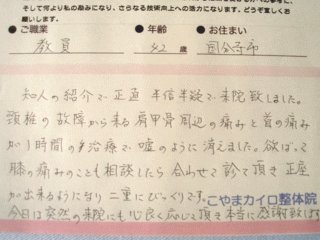 そして何より私の励みになり、さらなる技術向上への活力になります。どうぞ宜しくお
願いします。
●ご職業 ●年齢 ●お住まい
教員 42 歳 国分寺市
知人の紹介で正直半信半疑で来院致しました。
頚椎の故障から来る肩甲骨周辺の痛みと首の痛み
が1時間の治療で嘘のように消えました。欲ばって
膝の痛みのことも相談したら合わせて診て頂き正座
が出来るようになり二重にびっくりです。
こやまカイロ整体院
今日は突然の来院にも心良く応じて頂き本当に感謝致します